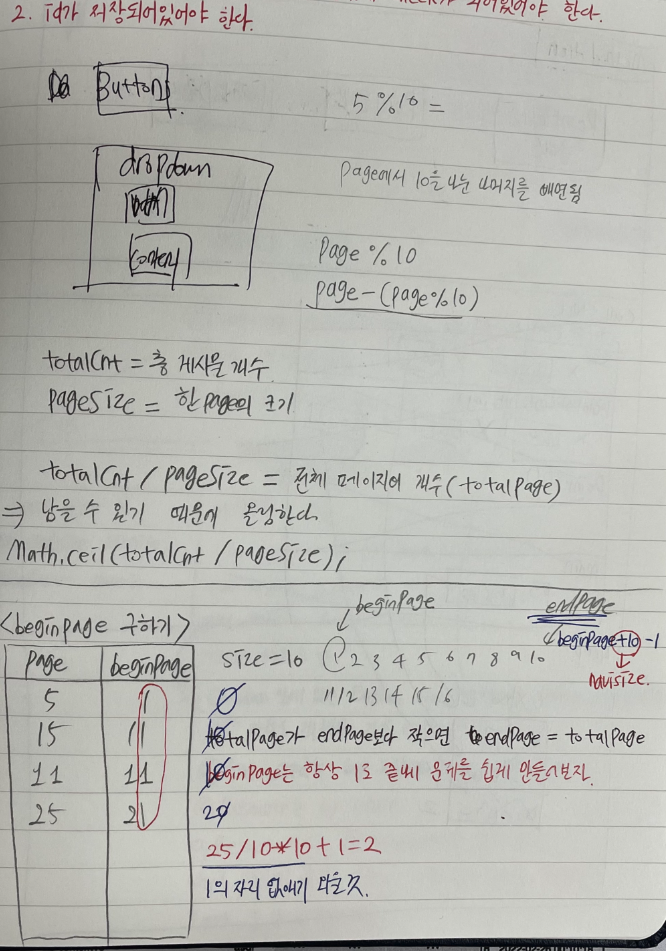 되어있어야 한다.
2. id가 저장되어있어야 한다.
Button
5 % 10 =
dropdown
page에서 10을 나눈 나머지를 빼면됨
content
page % 10
page - (page%10)
totalCnt = 총 게시물 개수
pageSize = 한 page의 크기
totalCnt / pageSize = 전체 페이지의 개수(totalpage)
⇒ 남을 수 있기 때문에 올림한다
Math.ceil(totalCnt / pageSize);
beginpage
endpage
<beginpage 구하기>
beginpage+10-1
page beginpage
size=10 1 2 3 4 5 6 7 8 9 10
navisize.
5 1 0
11 12 13 14 15 16
15 11
totalpage가 endpage보다 작으면 endpage = totalpage
11 11
beginpage는 항상 1로 끝네 문제를 쉽게 만들어보자.
25 21 20
25/10*10+1=2
1의 자리 없애기 위한것.